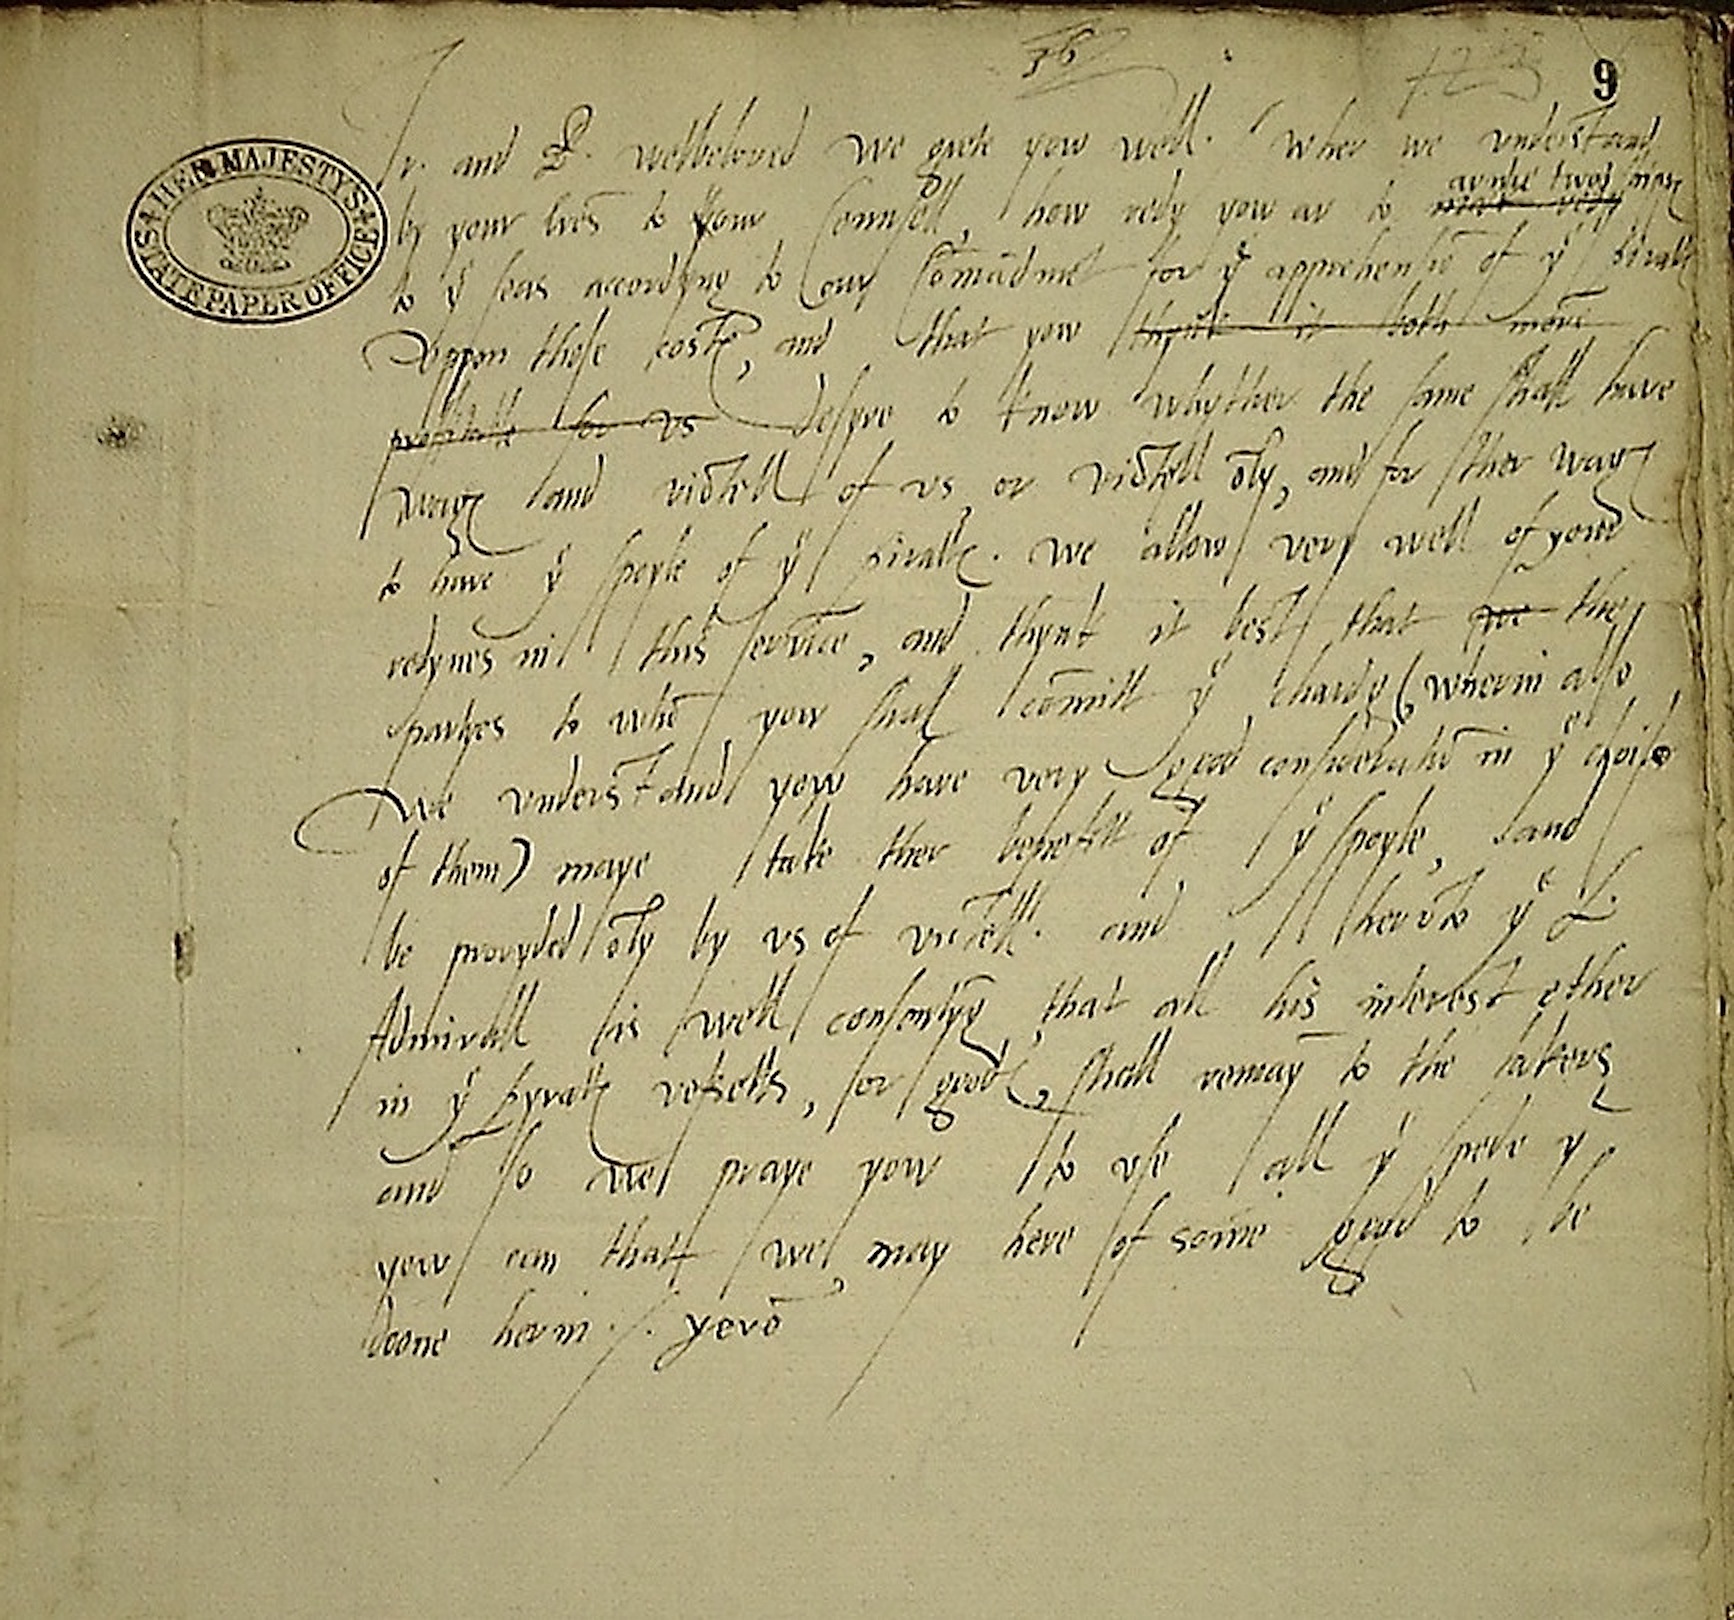 36
9
HER MAJESTYS STATE PAPER OFFICE
Tr. and R. welbeloved we grete yow well. Wher we understand
by your lres to your Counsell, how redy yow ar to
to yͤ seas accordyng to our Comādmēt for yͤ apprehensiō of yͤ piratꝭ
uppon those costꝭ, and that yow thynk it both more
profitable for us desyre to know whyther the same shall have
wagꝭ and victell of us or victell ōly, and for ther wagꝭ
to have yͤ spoyle of yͤ piratꝭ. We allow very well of your
redynes in this service, and thynk it best that we the
partyes to whō yow shal cōmitt yͤ chardg (wherin also
we understand yow have very good consideratiō in yͤ choise
of them) maye take ther benefitt of yͤ spoyle, and
be provyded ōly by us of victell. and herunto yͤ L.
Admirall is well that all his interest ether
in yͤ pyratꝭ vessells, or goodꝭ, shall remayn to the takers
and so we praye yow to use all yͤ spede yͭ
yow can that we may here of some good to be
doone herin ./. yevē